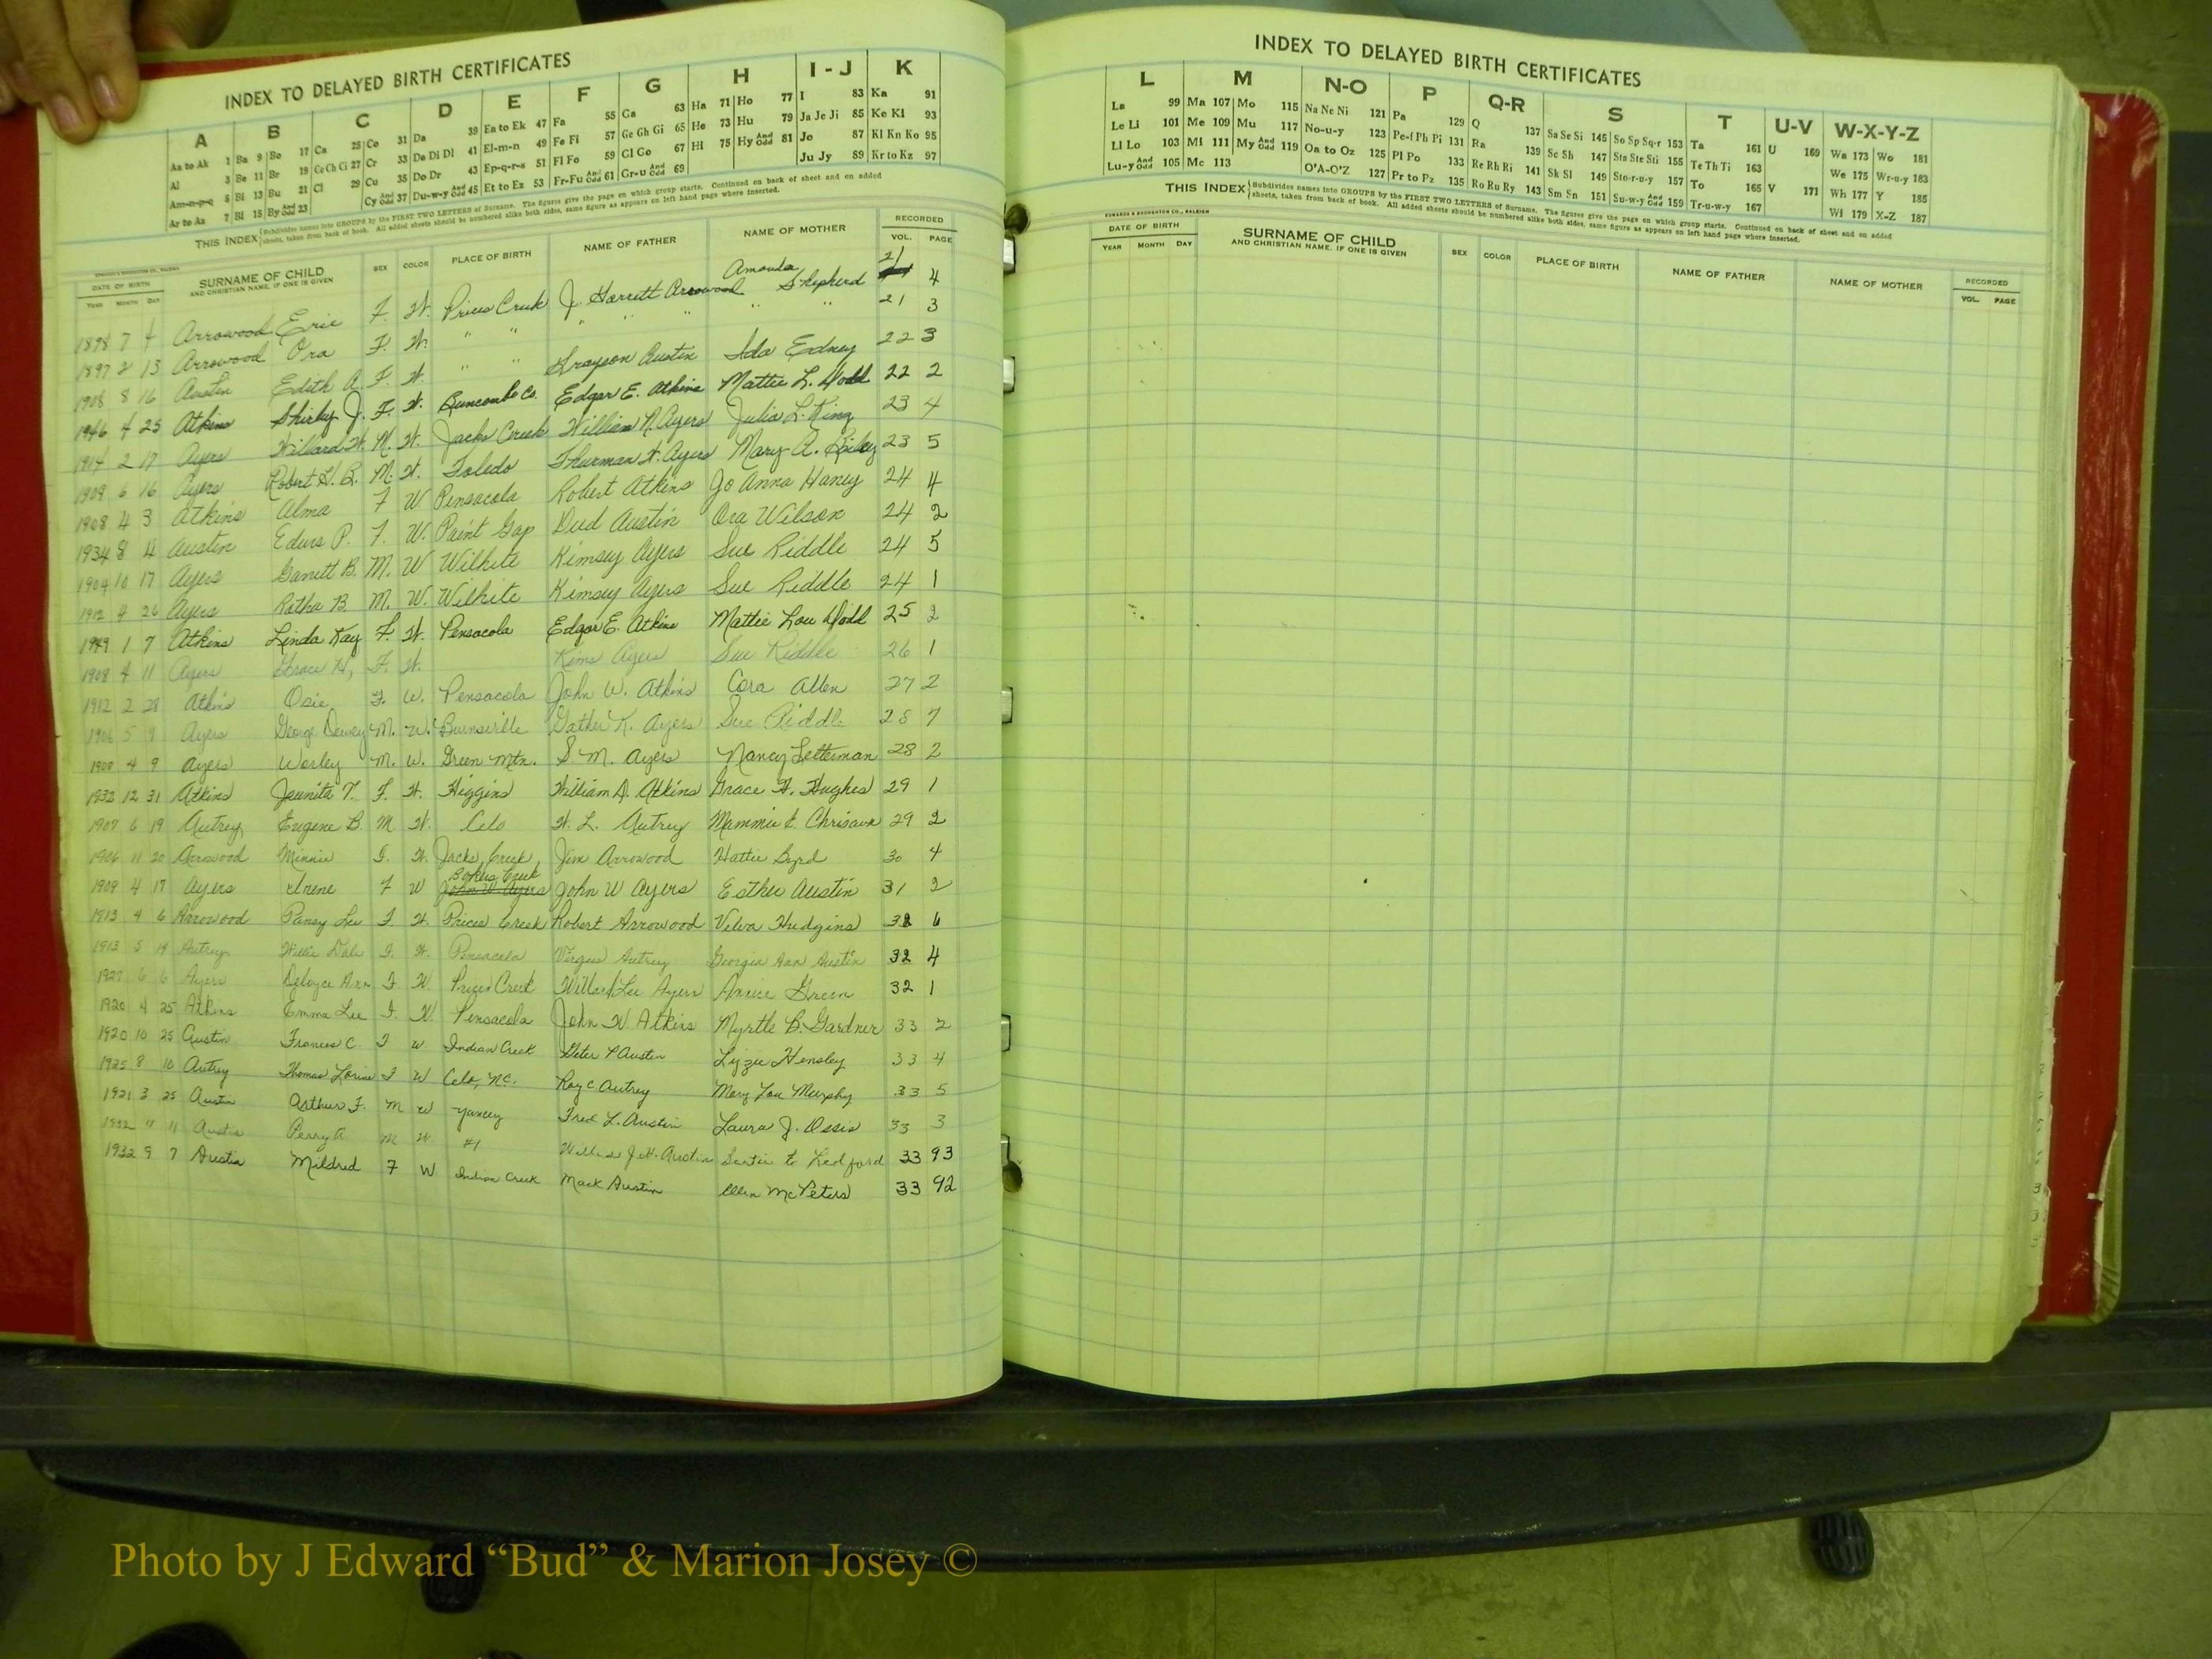 INDEX TO DELAYED BIRTH CERTIFICATES
A B C D E F G H I - J K
Aa to Ak 1 Ba 9 Bo 17 Ca 25 Co 31 Da 39 Ea to Ek 47 Fa 55 Ga 63 Ha 71 Ho 77 I 83 Ka 91
Al 3 Be 11 Br 19 Ce Ch Ci 27 Cr 33 De Di Dl 41 El-m-n 49 Fe Fi 57 Ge Gh Gi 65 He 73 Hu 79 Ja Je Ji 85 Ke Kl 93
Am-n-p-q 5 Bi 13 Bu 21 Cl 29 Cu 35 Do Dr 43 Ep-q-r-s 51 Fl Fo 59 Gl Go 67 Hi 75 Hy And Odd 81 Jo 87 Kl Kn Ko 95
Ar to Az 7 Bl 15 By And Odd 23 Cy And Odd 37 Du-w-y And Odd 45 Et to Ez 53 Fr-Fu And Odd 61 Gr-u And Odd 69 Ju Jy 89 Kr to Kz 97
THIS INDEX Subdivides names into GROUPS by the FIRST TWO LETTERS of Surname. The figures give the page on which group starts. Continued on back of sheet and on added
sheets, taken from back of book. All added sheets should be numbered alike both sides, same figure as appears on left hand page where inserted.
DATE OF BIRTH SURNAME OF CHILD SEX COLOR PLACE OF BIRTH NAME OF FATHER NAME OF MOTHER RECORDED
YEAR MONTH DAY AND CHRISTIAN NAME, IF ONE IS GIVEN VOL. PAGE
1898 7 4 Arrowood Evie F. W. Prices Creek J. Garrett Arrowood Amanda Shepherd 21 4
1897 2 13 Arrowood Ora F. W. " " " " " " " 21 3
1908 8 16 Austin Edith A. F. W. " " Grayson Austin Ida Edney 22 3
1946 4 25 Atkins Shirley J. F. W. Buncombe Co. Edgar E. Atkins Mattie L. Dodd 22 2
1914 2 17 Ayers Willard W. M. W. Jacks Creek William N. Ayers Julia L. King 23 4
1909 6 16 Ayers Robert H. B. M. W. Toledo Thurman W. Ayers Mary A. Bailey 23 5
1908 4 3 Atkins Alma F W Pensacola Robert Atkins Jo Anna Haney 24 4
1934 8 4 Austin P. F. W. Paint Gap Dud Austin Ora Wilson 24 2
1904 10 17 Ayers Garrett B. M. W Wilhite Kimsey Ayers Sue Riddle 24 5
1912 4 26 Ayers B. M. W. Wilhite Kimsey Ayers Sue Riddle 24 1
1949 1 7 Atkins Linda Kay F. W. Pensacola Edgar E. Atkins Mattie Lou Dodd 25 2
1908 4 11 Ayers Grace H, F. W. Kims Ayers Sue Riddle 26 1
1912 2 28 Atkins Osie F. W. Pensacola John W. Atkins Cora Allen 27 2
1906 5 9 Ayers George Dewey M. W. Burnsville K. Ayers Sue Riddle 28 7
4 9 Ayers Wesley M. W. Green Mtn. S. M. Ayers Nancy Letterman 28 2
1932 12 31 Atkins Jaunita T. F. W. Higgins William D. Atkins Grace H. Hughes 29 1
1907 6 19 Autrey Eugene B. M W. Celo W. L. Autrey Mammie E. 29 2
1906 11 20 Arrowood Minnie F. W. Jacks Creek Jim Arrowood Hattie Byrd 30 4
1909 4 17 Ayers Irene F W John W Ayers Creek John W Ayers Esther Austin 31 2
1913 4 6 Arrowood Pansy Lee F. W. Prices Creek Robert Arrowood Velva Hudgins 32 6
1913 5 14 Autrey Willie Dale F. W. Pensacola Virgus Autrey Georgia Ann Austin 32 4
1927 6 6 Ayers Ann F W. Prices Creek Willard Lee Ayers Green 32 1
1920 4 25 Atkins Emma Lee F. W. Pensacola John W Atkins Myrtle B. Gardner 33 2
1920 10 25 Austin Frances C. F W Indian Creek Peter P Austin Lizzie Hensley 33 4
1925 8 10 Autrey Thomas F W Celo, N.C. Roy C Autrey Mary Lou Murphy 33 5
1921 3 25 Austin Arthur F. M W Yancey Fred L. Austin Laura J. 33 3
11 Austin Perry A M W #1 J.H. Austin Ledford 33 93
1932 9 7 Austin Mildred F W Indian Creek Mack Austin Ellen McPeters 33 92
INDEX TO DELAYED BIRTH CERTIFICATES
L M N-O P Q-R S T U-V W-X-Y-Z
La 99 Ma 107 Mo 115 Na Ne Ni 121 Pa 129 Q 137 Sa Se Si 145 So Sp Sq-r 153 Ta 161 U 169 Wa 173 Wo 181
Le Li 101 Me 109 Mu 117 No-u-y 123 Pe-f Ph Pi 131 Ra 139 Sc Sh 147 Sta Ste Sti 155 Te Th Ti 163 We 175 Wr-u-y 183
Ll Lo 103 Mi 111 My And Odd 119 Oa to Oz 125 Pl Po 133 Re Rh Ri 141 Sk Sl 149 Sto-r-u-y 157 To 165 V 171 Wh 177 Y 185
Lu-y And Odd 105 Mc 113 O'A-O'Z 127 Pr to Pz 135 Ro Ru Ry 143 Sm Sn 151 Su-w-y And Odd 159 Tr-u-w-y 167 Wi 179 X-Z 187
THIS INDEX Subdivides names into GROUPS by the FIRST TWO LETTERS of Surname. The figures give the page on which group starts. Continued on back of sheet and on added
sheets, taken from back of book. All added sheets should be numbered alike both sides, same figure as appears on left hand page where inserted.
EDWARDS & BROUGHTON CO., RALEIGH
DATE OF BIRTH SURNAME OF CHILD SEX COLOR PLACE OF BIRTH NAME OF FATHER NAME OF MOTHER RECORDED
YEAR MONTH DAY AND CHRISTIAN NAME, IF ONE IS GIVEN VOL. PAGE
Photo by J Edward “Bud” & Marion Josey ©